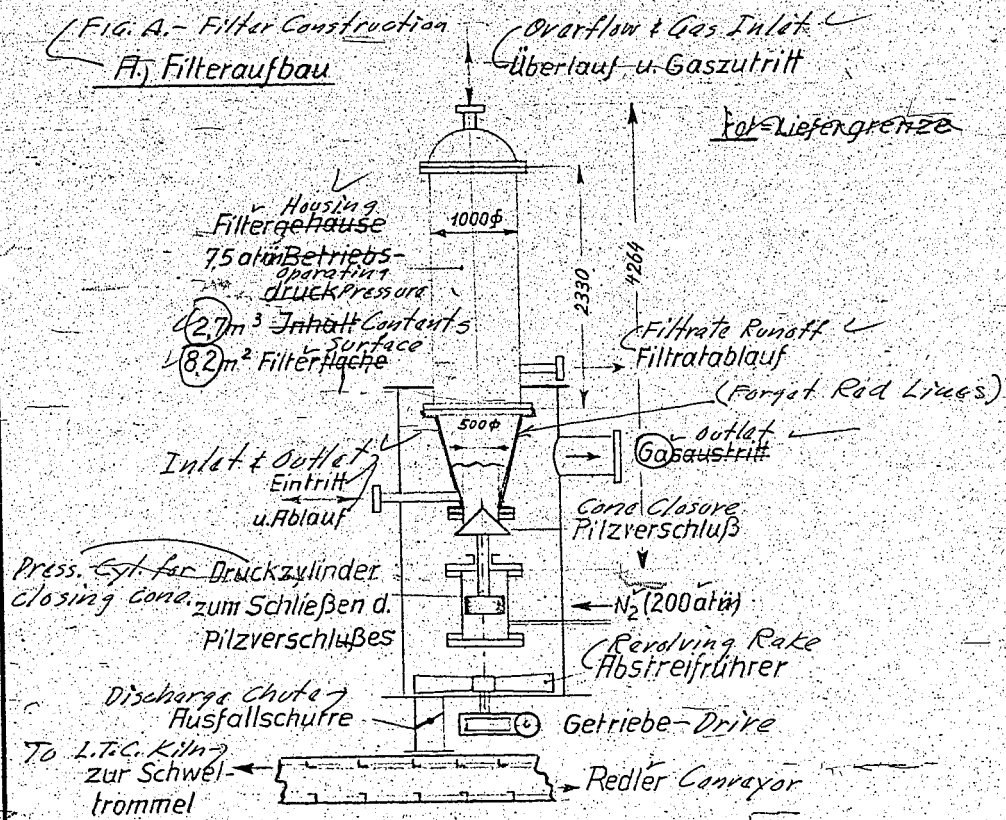 FIG. A.- Filter Construction
A.) Filteraufbau
Overflow & Gas Inlet
Überlauf u. Gaszutritt
rot=Liefergrenze
Housing
Filtergehäuse
7,5 atü Betriebs-
Operating
druck Pressure
2,7 m³ Inhalt Contents
Surface
8,2 m² Filterfläche
1000 φ
2330
4264
Filtrate Runoff
Filtratablauf
(Forget Red Lines)
500 φ
Outlet
Gasaustritt
Inlet & Outlet
Eintritt
u. Ablauf
Cone Closure
Pilzverschluß
Press. Cyl. for Druckzylinder
closing cone. zum Schließen d.
Pilzverschlußes
N₂ (200 atü)
Revolving Rake
Abstreifrührer
Discharge Chute
Ausfallschurre
Getriebe-Drive
To L.T.C. Kiln
zur Schwel-
trommel
Redler Conveyor